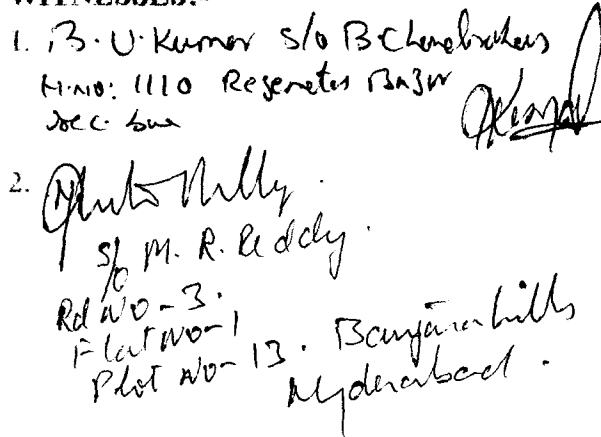 WITNESSES:
1. B. U. Kumar S/o B Chandrasekhar
H.NO: 1110 Regimental Bazar
Sec. bad
2.
S/o M. R. Reddy.
Rd No - 3.
Flat No - 1
Plot No - 13. Banjara hills
Hyderabad.